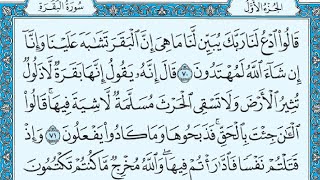 الجزء الأول
سورة البقرة
قَالُوا۟ ٱدْعُ لَنَا رَبَّكَ يُبَيِّن لَّنَا مَا هِىَ إِنَّ ٱلْبَقَرَ تَشَٰبَهَ عَلَيْنَا وَإِنَّآ
إِن شَآءَ ٱللَّهُ لَمُهْتَدُونَ ٧٠ قَالَ إِنَّهُۥ يَقُولُ إِنَّهَا بَقَرَةٌ لَّا ذَلُولٌ
تُثِيرُ ٱلْأَرْضَ وَلَا تَسْقِى ٱلْحَرْثَ مُسَلَّمَةٌ لَّا شِيَةَ فِيهَا ۚ قَالُوا۟
ٱلْـَٰٔنَ جِئْتَ بِٱلْحَقِّ ۚ فَذَبَحُوهَا وَمَا كَادُوا۟ يَفْعَلُونَ ٧١ وَإِذْ
قَتَلْتُمْ نَفْسًا فَٱدَّٰرَْٰٔتُمْ فِيهَا ۖ وَٱللَّهُ مُخْرِجٌ مَّا كُنتُمْ تَكْتُمُونَ